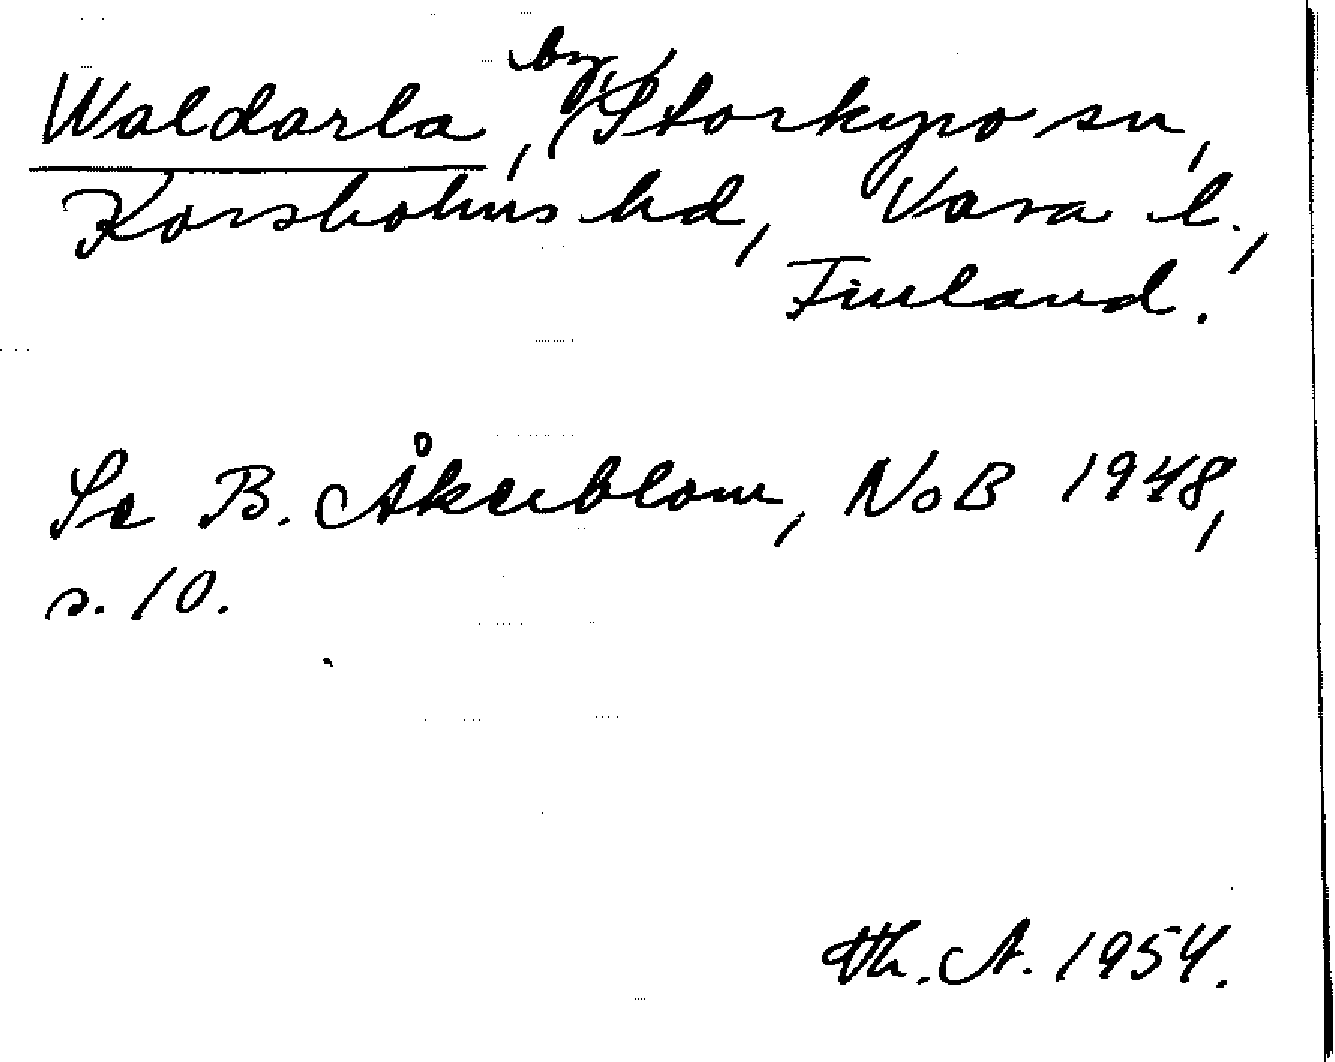 Waldarla, by, Storkyro sn,
Korsholms hd, Vasa l.,
Finland.
Se B. Åkerblom, NoB 1948,
s. 10.
Th. A. 1954.